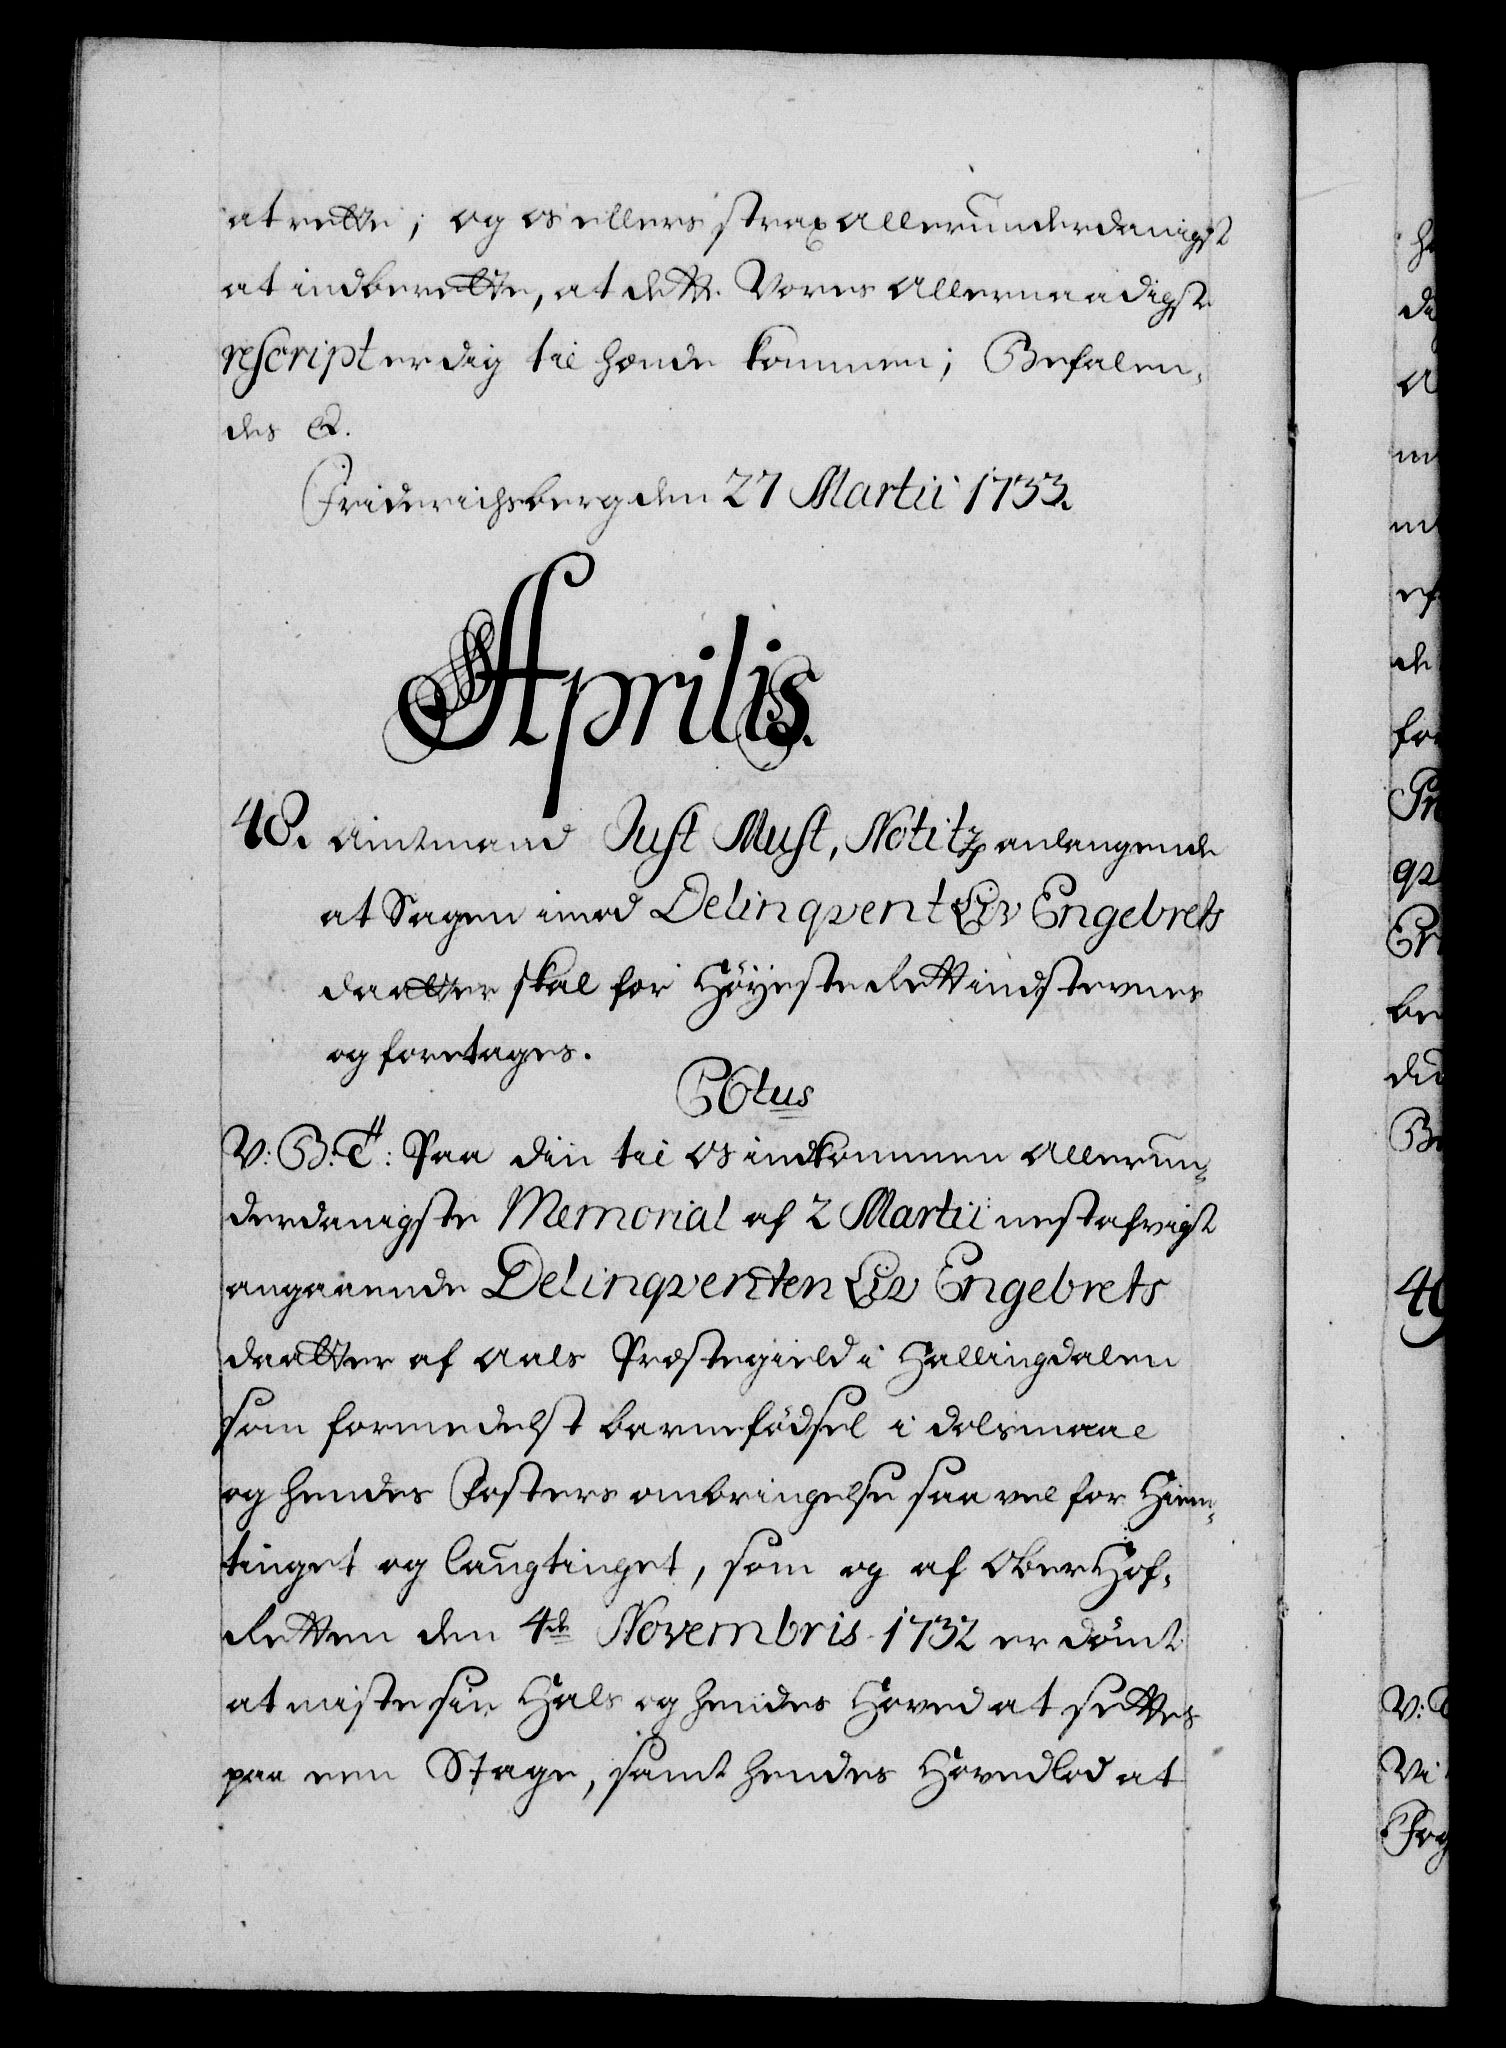 at rette; og os ellers strax allerunderdanigst
at indberette, at dette Vores allernaadigste
rescript er dig til hænde kommen; Befalen-
des &.
Friderichsberg den 27 Martii 1733.
Aprilis.
48. Amtmand Just Must, Notitz anlangende
at Sagen imod Delinqvent Liv Engebrets
daatter skal for Høyeste Rett indstevnes
og foretages.
C6tus
V: B: T: Paa din til os indkommen allerun-
derdanigste Memorial af 2 Martii nestafvigt
angaaende Delinqventen Liv Engebrets
daatter af Aals Præstegield i Hallingdalen
som formedelst barnefødsel i dolsmaal
og hendes Fosters ombringelse saa vel for Hiem-
tinget og Laugtinget, som og af OberHof-
Retten den 4de Novembris 1732 er dømt
at miste sin Hals og hendes Hoved at settes
paa een Stage, samt hendes Hovedlod at
49